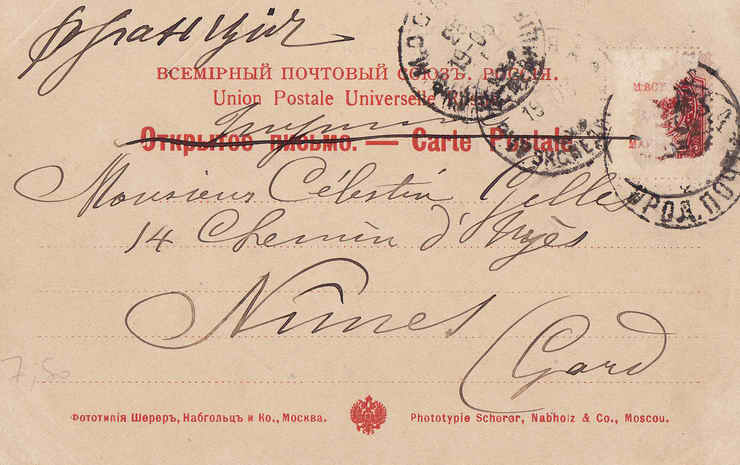 Франція
ВСЕМІРНЫЙ ПОЧТОВЫЙ СОЮЗЪ. РОССІЯ.
Union Postale Universelle
Открытое письмо. — Carte Postale
Monsieur Célestin
14 Chemin d'Uzès
Nîmes
Gard
7,50
Фототипія Шереръ, Набгольцъ и Ко., Москва.
Phototypie Scherer, Nabholz & Co., Moscou.